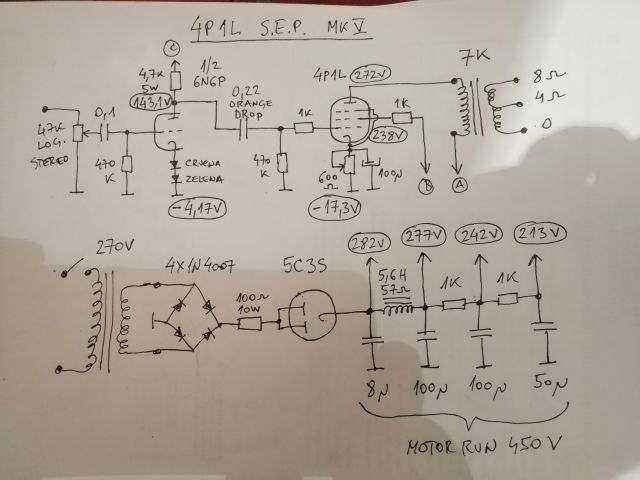 4P1L S.E.P. MK V
C
4,7K
5W
1/2
6N6P
143,1V
0,22
ORANGE
DROP
4P1L
272V
7K
8Ω
4Ω
0
47K
LOG.
STEREO
0,1
470
K
CRVENA
ZELENA
-4,17V
1K
470
K
1K
238V
600
Ω
100µ
-17,3V
B
A
270V
4X1N4007
100Ω
10W
5C3S
282V
277V
242V
213V
5,6H
57Ω
1K
1K
8µ
100µ
100µ
50µ
MOTOR RUN 450V